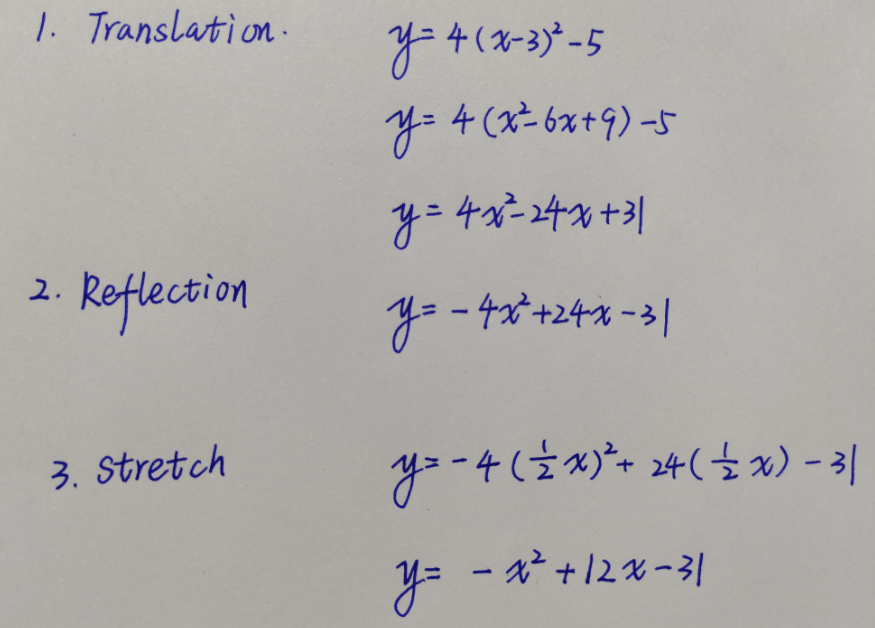 1. Translation. y = 4(x-3)²-5
y = 4(x²-6x+9)-5
y = 4x²-24x+31
2. Reflection y = -4x²+24x-31
3. stretch y = -4(½x)²+ 24(½x) -31
y = -x²+12x-31